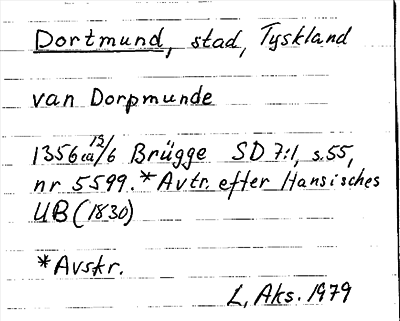 Dortmund, stad, Tyskland
van Dorpmunde
1356 ca 12/6 Brügge SD 7:1, s. 55,
nr 5599. *Avtr. efter Hansisches
UB (1830)
*Avskr.
L, Aks. 1979